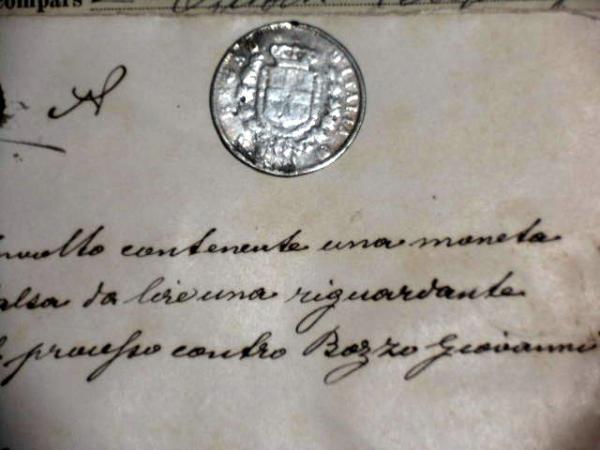 compars
A
nvolto contenente una moneta
alsa da lire una riguardante
processo contro Bozzo Giovanni